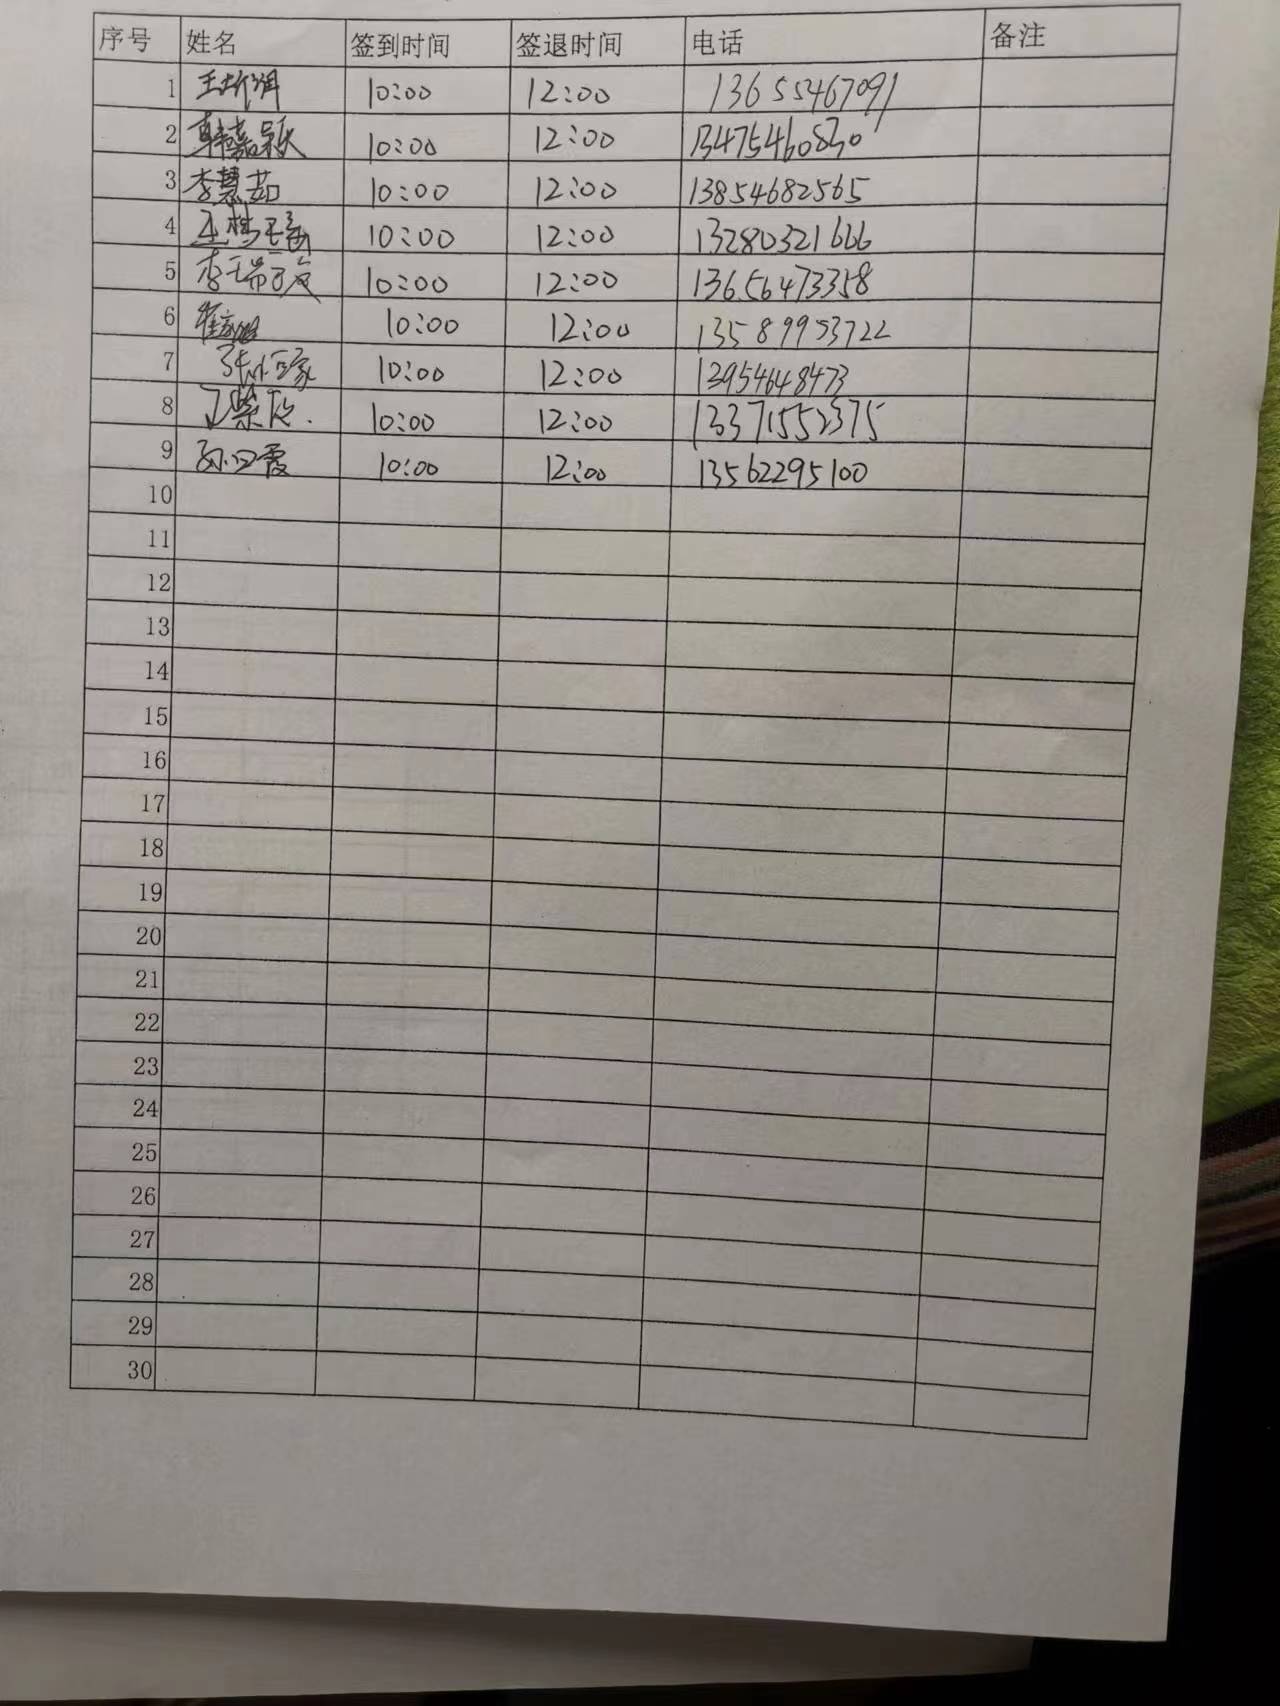 序号 姓名 签到时间 签退时间 电话 备注
1 10:00 12:00 13655467091
2 韩嘉颖 10:00 12:00 13475460830
3 李慧茹 10:00 12:00 13854682565
4 王梦瑶 10:00 12:00 13280321666
5 李瑞 10:00 12:00 13656473358
6 10:00 12:00 13589953722
7 10:00 12:00 13954648473
8 10:00 12:00 13371552375
9 10:00 12:00 13562295100
10
11
12
13
14
15
16
17
18
19
20
21
22
23
24
25
26
27
28
29
30